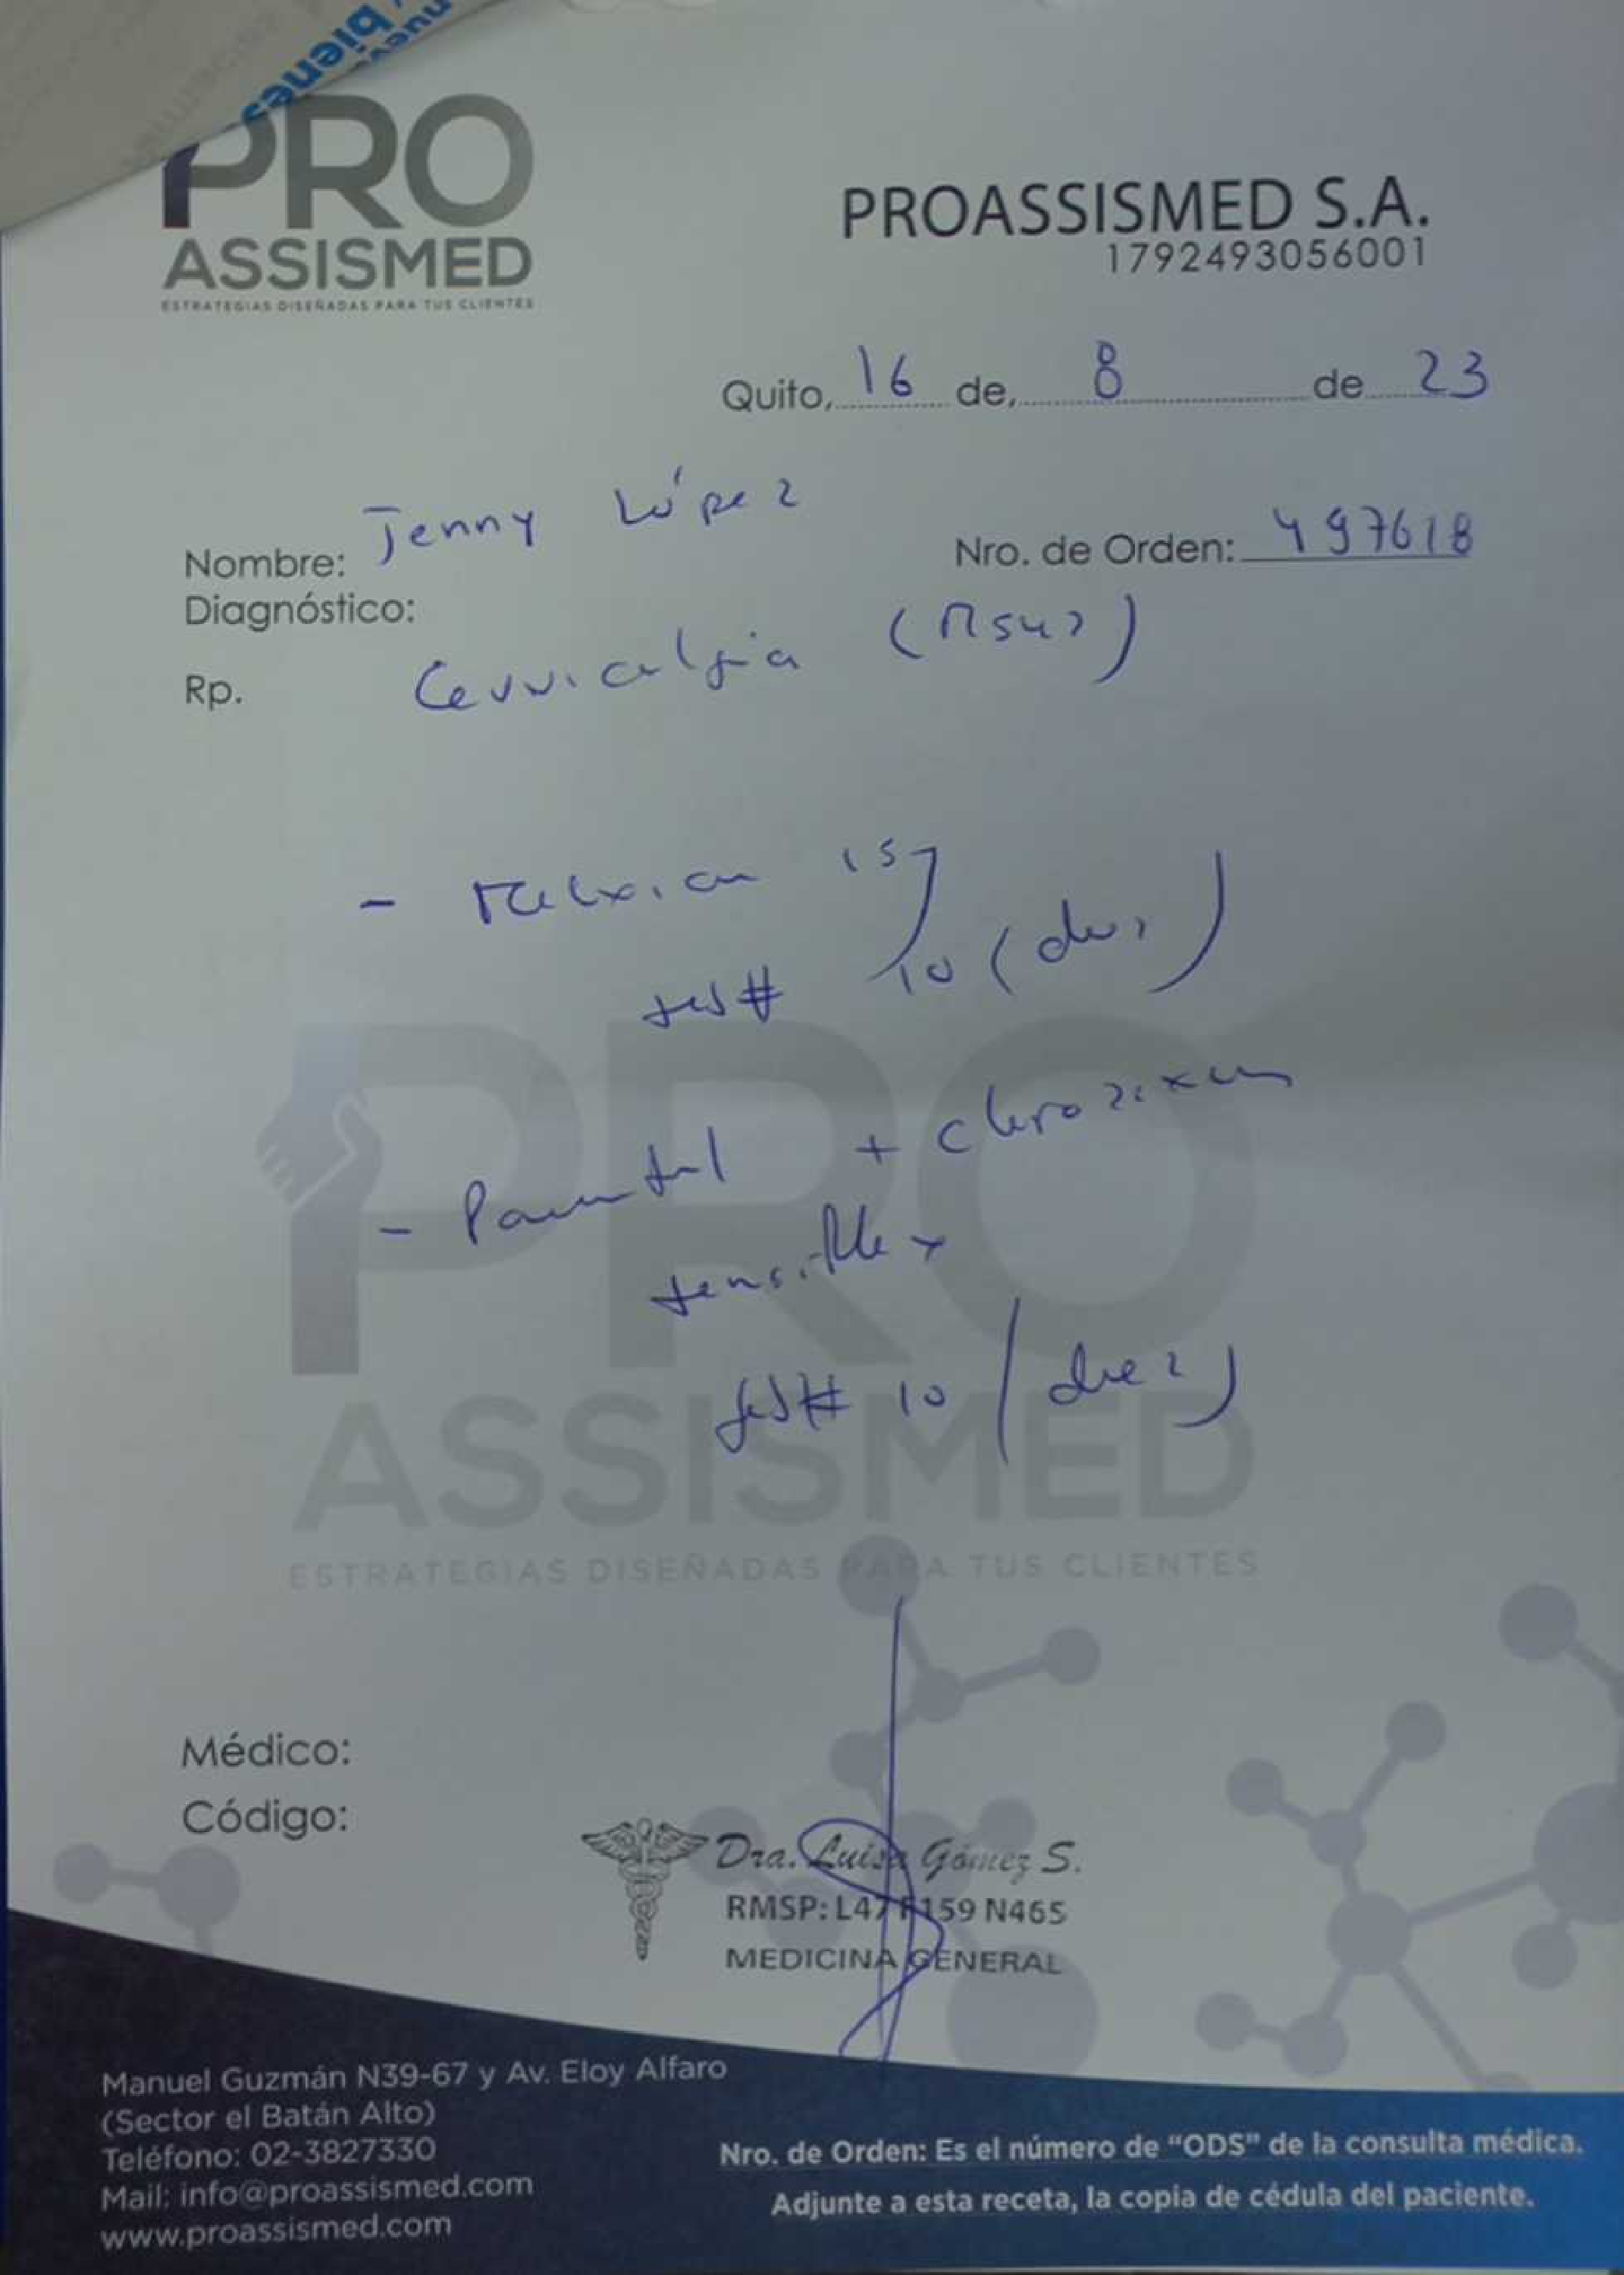 nuev
bienes
PRO
ASSISMED
ESTRATEGIAS DISEÑADAS PARA TUS CLIENTES
PROASSISMED S.A.
1792493056001
Quito, 16 de, 8 de 23
Nombre: Jenny López
Nro. de Orden: 497618
Diagnóstico:
Rp. Cervicalgia (M542)
- 15
# 10 (diez)
- + clorozixan
tensiflex
# 10 (diez)
PRO
ASSISMED
ESTRATEGIAS DISEÑADAS PARA TUS CLIENTES
Médico:
Código:
Dra. Luisa Gómez S.
RMSP: L47 159 N465
MEDICINA GENERAL
Manuel Guzmán N39-67 y Av. Eloy Alfaro
(Sector el Batán Alto)
Teléfono: 02-3827330
Mail: info@proassismed.com
www.proassismed.com
Nro. de Orden: Es el número de “ODS” de la consulta médica.
Adjunte a esta receta, la copia de cédula del paciente.